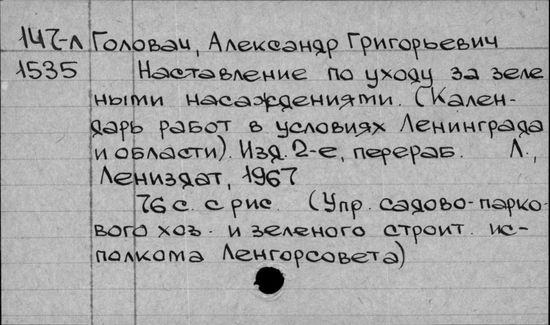 147-л Головач, Александр Григорьевич
1535 Наставление по уходу за зеле
ными насаждениями. (Кален-
дарь работ в условиях Ленинграда
и области). Изд. 2-е, перераб. Л.,
Лениздат, 1967
76 с. с рис. (Упр. садово-парко-
вого хоз. и зеленого строит. ис-
полкома Ленгорсовета)